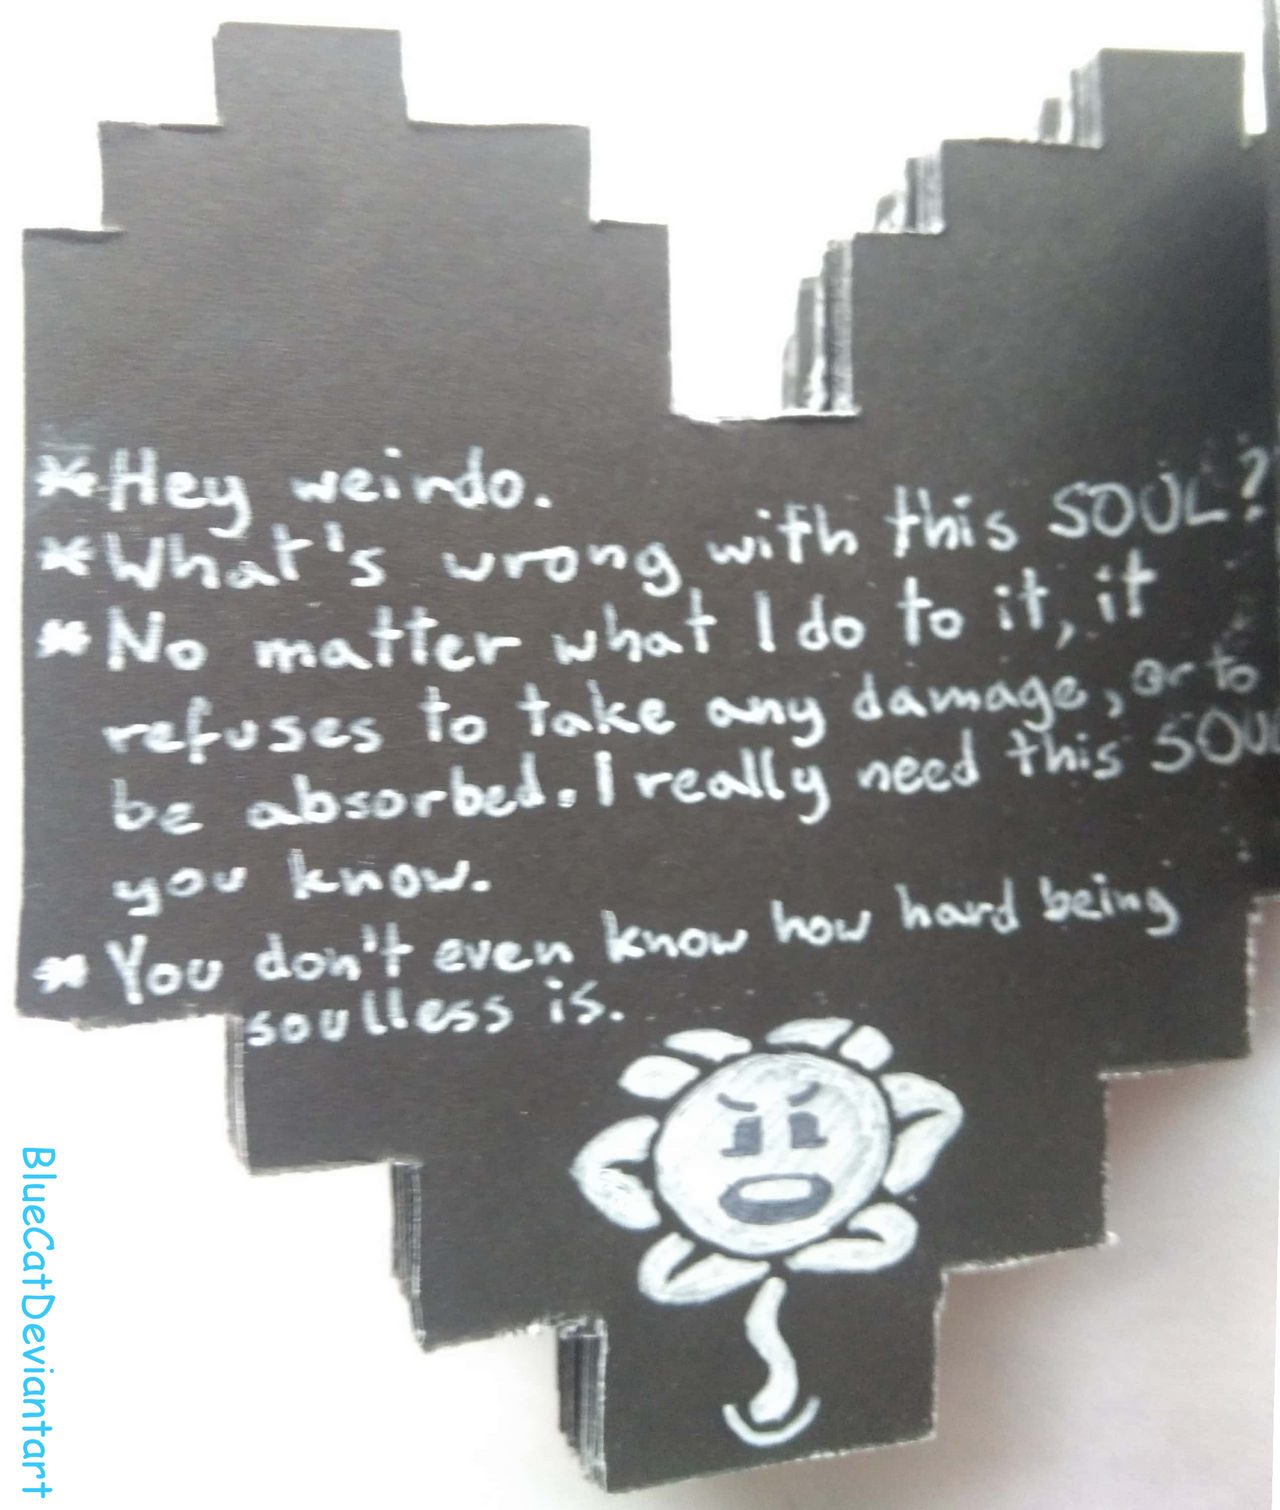 * Hey weirdo.
* What's wrong with this SOUL?
* No matter what I do to it, it
refuses to take any damage, or to
be absorbed. I really need this SOUL
you know.
* You don't even know how hard being
soulless is.
BlueCatDeviantart